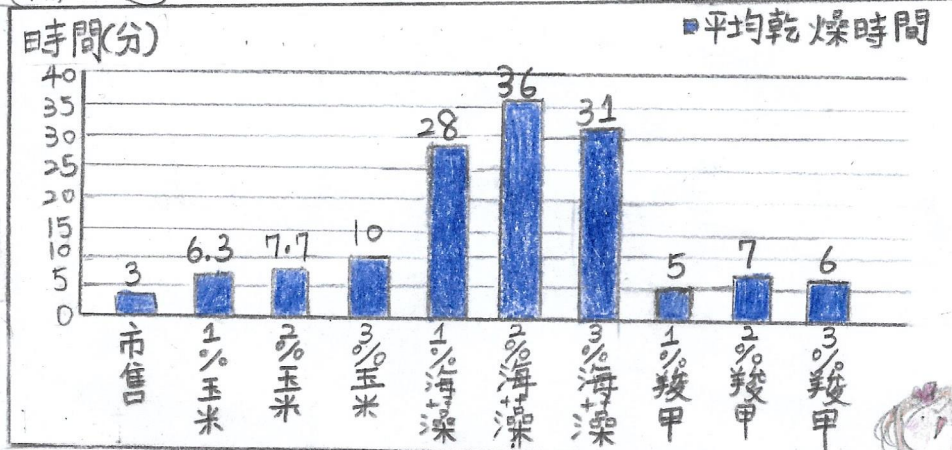 時間(分)
■平均乾燥時間
40
35
30
25
20
15
10
5
0
3
6.3
7.7
10
28
36
31
5
7
6
市售
1%玉米
2%玉米
3%玉米
1%海藻
2%海藻
3%海藻
1%羧甲
2%羧甲
3%羧甲